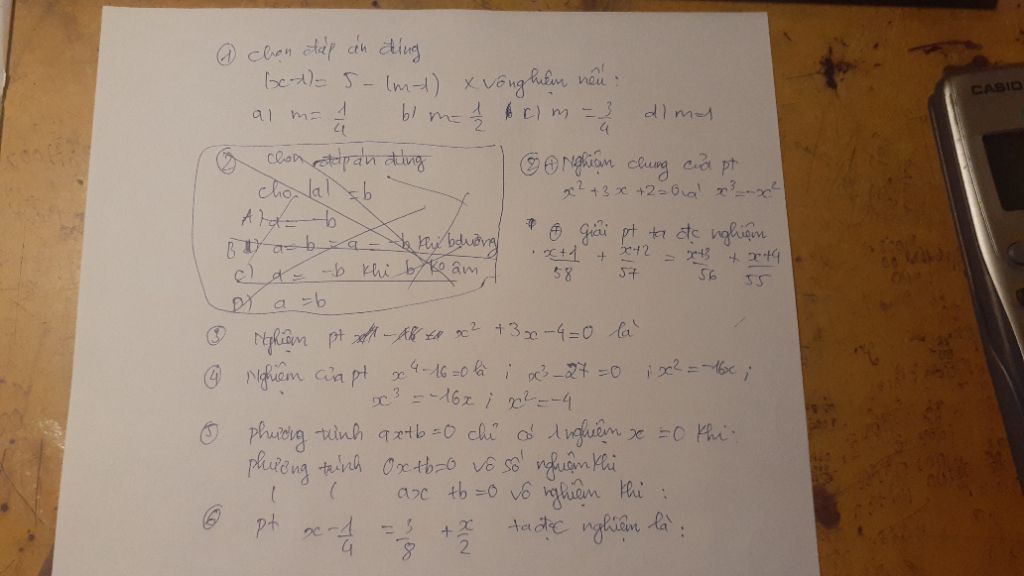 ① chọn đáp án đúng
(x-1) = 5 - (m-1) x vô nghiệm nếu:
a) m = 1/4 b) m = 1/2 c) m = 3/4 d) m=1
② chọn đáp án đúng
cho |a| = b
A) a = -b
B) a = b = a = -b khi b dương
C) a = -b khi b ko âm
D) a = b
② + Nghiệm chung của pt
x² + 3x + 2 = 0 và x³ = -x²
+ Giải pt ta đc nghiệm
x+1/58 + x+2/57 = x+3/56 + x+4/55
③ Nghiệm pt x² + 3x - 4 = 0 là
④ Nghiệm của pt x⁴-16=0 là ; x³-27=0 ; x² = -16x ;
x³ = -16x ; x² = -4
⑤ phương trình ax+b=0 chỉ có 1 nghiệm x = 0 khi.
phương trình 0x+b=0 vô số nghiệm khi
ax +b = 0 vô nghiệm khi :
⑥ pt x - 1/4 = 3/8 + x/2 ta đc nghiệm là :
CASIO